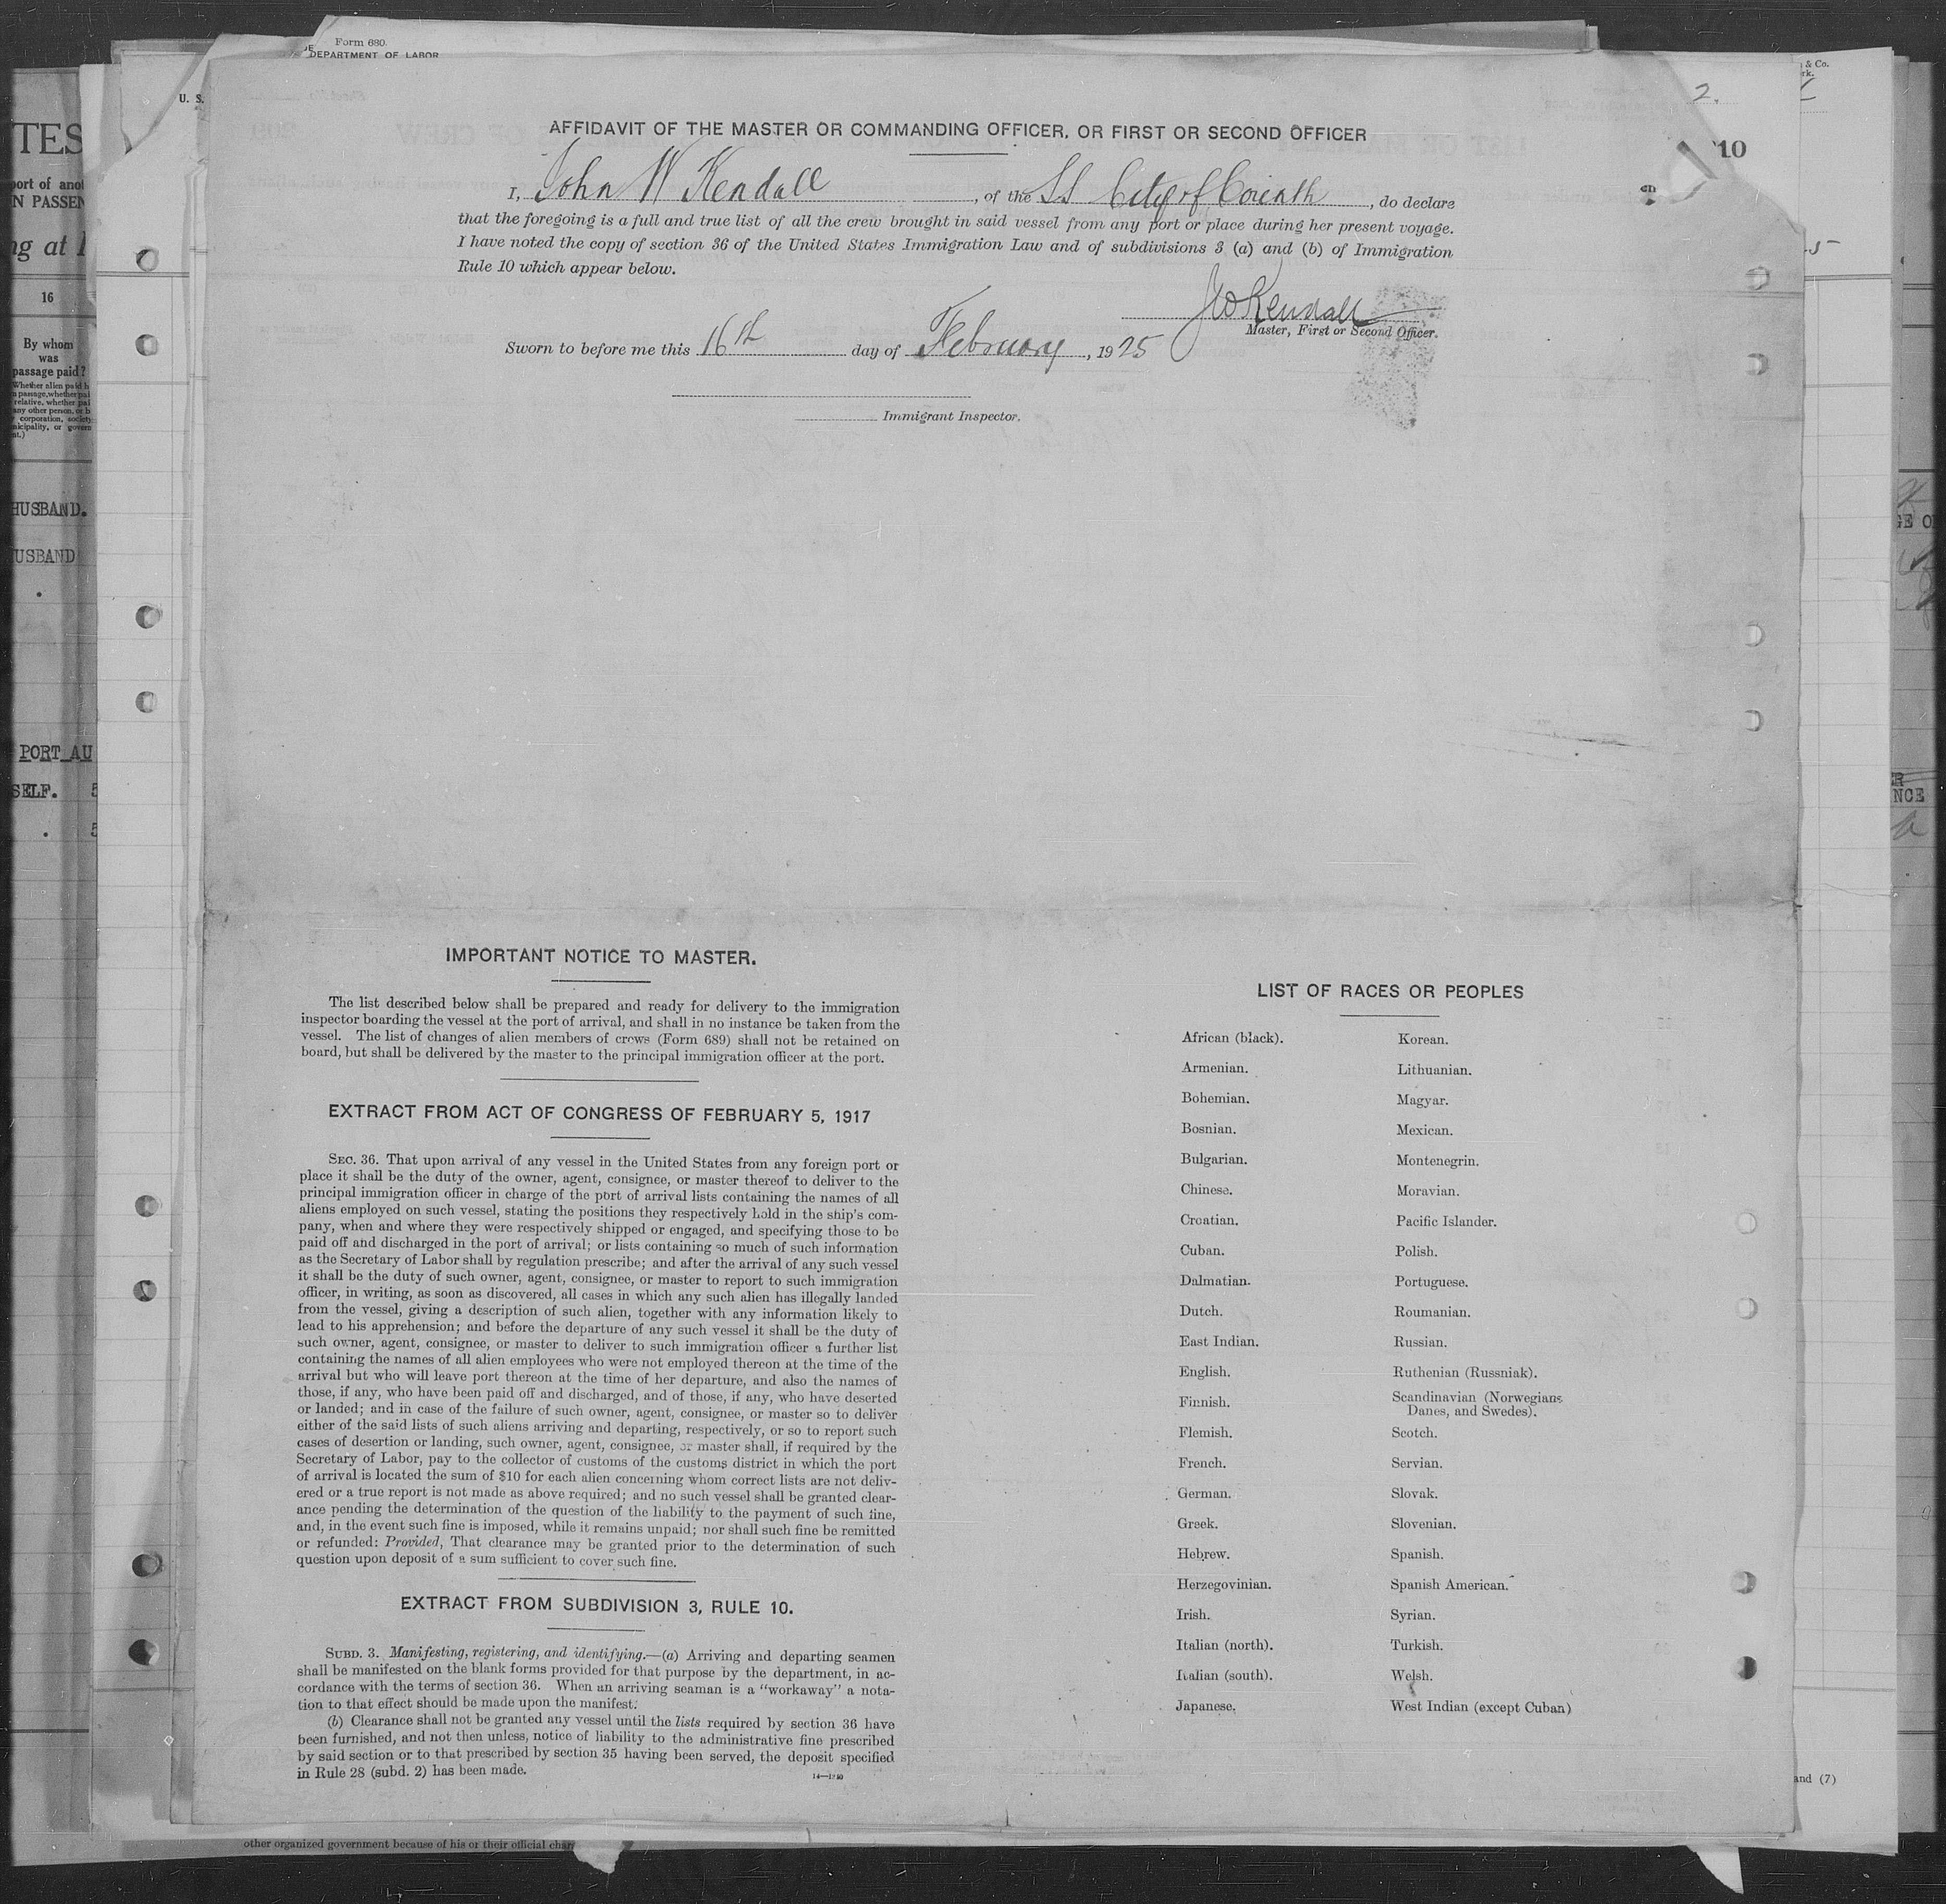 Form 680.
DEPARTMENT OF LABOR
U. S.
& Co.
2.
10
TES
port of anot
N PASSEN
ng at
16
By whom
was
passage paid?
HUSBAND.
USBAND
PORT AU
SELF. 5
. 5
AFFIDAVIT OF THE MASTER OR COMMANDING OFFICER, OR FIRST OR SECOND OFFICER
I, John W Kendall, of the SS City of Corinth, do declare
that the foregoing is a full and true list of all the crew brought in said vessel from any port or place during her present voyage.
I have noted the copy of section 36 of the United States Immigration Law and of subdivisions 3 (a) and (b) of Immigration
Rule 10 which appear below.
JWKendall
Master, First or Second Officer.
Sworn to before me this 16th day of February, 1925
Immigrant Inspector.
IMPORTANT NOTICE TO MASTER.
The list described below shall be prepared and ready for delivery to the immigration
inspector boarding the vessel at the port of arrival, and shall in no instance be taken from the
vessel. The list of changes of alien members of crews (Form 689) shall not be retained on
board, but shall be delivered by the master to the principal immigration officer at the port.
EXTRACT FROM ACT OF CONGRESS OF FEBRUARY 5, 1917
SEC. 36. That upon arrival of any vessel in the United States from any foreign port or
place it shall be the duty of the owner, agent, consignee, or master thereof to deliver to the
principal immigration officer in charge of the port of arrival lists containing the names of all
aliens employed on such vessel, stating the positions they respectively hold in the ship's com-
pany, when and where they were respectively shipped or engaged, and specifying those to be
paid off and discharged in the port of arrival; or lists containing so much of such information
as the Secretary of Labor shall by regulation prescribe; and after the arrival of any such vessel
it shall be the duty of such owner, agent, consignee, or master to report to such immigration
officer, in writing, as soon as discovered, all cases in which any such alien has illegally landed
from the vessel, giving a description of such alien, together with any information likely to
lead to his apprehension; and before the departure of any such vessel it shall be the duty of
such owner, agent, consignee, or master to deliver to such immigration officer a further list
containing the names of all alien employees who were not employed thereon at the time of the
arrival but who will leave port thereon at the time of her departure, and also the names of
those, if any, who have been paid off and discharged, and of those, if any, who have deserted
or landed; and in case of the failure of such owner, agent, consignee, or master so to deliver
either of the said lists of such aliens arriving and departing, respectively, or so to report such
cases of desertion or landing, such owner, agent, consignee, or master shall, if required by the
Secretary of Labor, pay to the collector of customs of the customs district in which the port
of arrival is located the sum of $10 for each alien concerning whom correct lists are not deliv-
ered or a true report is not made as above required; and no such vessel shall be granted clear-
ance pending the determination of the question of the liability to the payment of such fine,
and, in the event such fine is imposed, while it remains unpaid; nor shall such fine be remitted
or refunded: Provided, That clearance may be granted prior to the determination of such
question upon deposit of a sum sufficient to cover such fine.
EXTRACT FROM SUBDIVISION 3, RULE 10.
SUBD. 3. Manifesting, registering, and identifying.—(a) Arriving and departing seamen
shall be manifested on the blank forms provided for that purpose by the department, in ac-
cordance with the terms of section 36. When an arriving seaman is a "workaway" a nota-
tion to that effect should be made upon the manifest.
(b) Clearance shall not be granted any vessel until the lists required by section 36 have
been furnished, and not then unless, notice of liability to the administrative fine prescribed
by said section or to that prescribed by section 35 having been served, the deposit specified
in Rule 28 (subd. 2) has been made.
LIST OF RACES OR PEOPLES
African (black). Korean.
Armenian. Lithuanian.
Bohemian. Magyar.
Bosnian. Mexican.
Bulgarian. Montenegrin.
Chinese. Moravian.
Croatian. Pacific Islander.
Cuban. Polish.
Dalmatian. Portuguese.
Dutch. Roumanian.
East Indian. Russian.
English. Ruthenian (Russniak).
Finnish. Scandinavian (Norwegians,
Danes, and Swedes).
Flemish. Scotch.
French. Servian.
German. Slovak.
Greek. Slovenian.
Hebrew. Spanish.
Herzegovinian. Spanish American.
Irish. Syrian.
Italian (north). Turkish.
Italian (south). Welsh.
Japanese. West Indian (except Cuban)
and (7)
other organized government because of his or their official char